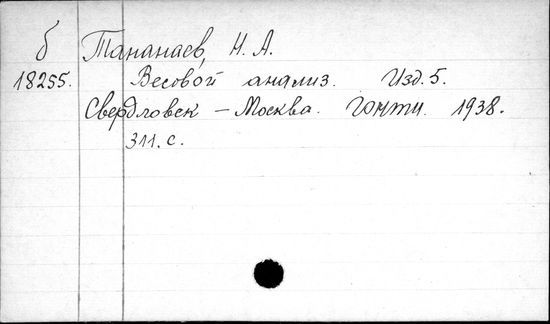 б Тананаев, Н. А.
18255. Весовой анализ. Изд. 5.
Свердловск – Москва. Гонти. 1938.
311. с.